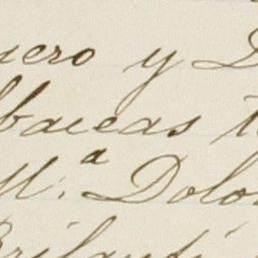 uero y D
lbaceas t
M.ª Dolo